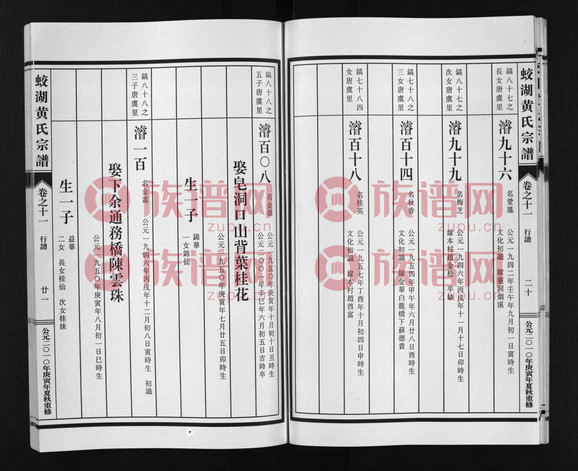 蛟湖黄氏宗譜
卷之十一
行譜
二十
公元二〇一〇年庚寅年夏秋重修
鎬八十七之
長女唐虞里
濬九十六
名愛鳳
公元一九四二年壬午年九月初一日寅時生
文化初識
鎬八十七之
次女唐虞里
濬九十九
名梅芝
公元一九四六年丙戌年十一月十七日卯時生
鎬七十八之
三女唐虞里
濬百十四
名秋香
公元一九五四年甲午年六月廿八日酉時生
文化初識
嫁金華白龍橋下薛德貴
鎬七十八四
女唐虞里
濬百十八
名桂英
公元一九五七年丁酉年十月初四日申時生
文化初識
嫁本村趙啓富
鎬八十八之
五子唐虞里
濬百〇八
名金委
公元一九五〇年庚寅年十月初十日丑時生
娶皂洞口山背葉桂花
公元一九五〇年庚寅年七月廿五日卯時生
生一子
錦華
一女錦仙
鎬八十八之
三子唐虞里
濬一百
名金富
公元一九四六年丙戌年十二月初八日寅時生
初識
娶下余通務橋陳雲珠
公元一九五〇年庚寅年八月初一日巳時生
生一子
益華
二女
長女桂仙
次女桂妹
蛟湖黄氏宗譜
卷之十一
行譜
廿一
公元二〇一〇年庚寅年夏秋重修
族谱网
zupu.cn
族谱网
zupu.cn